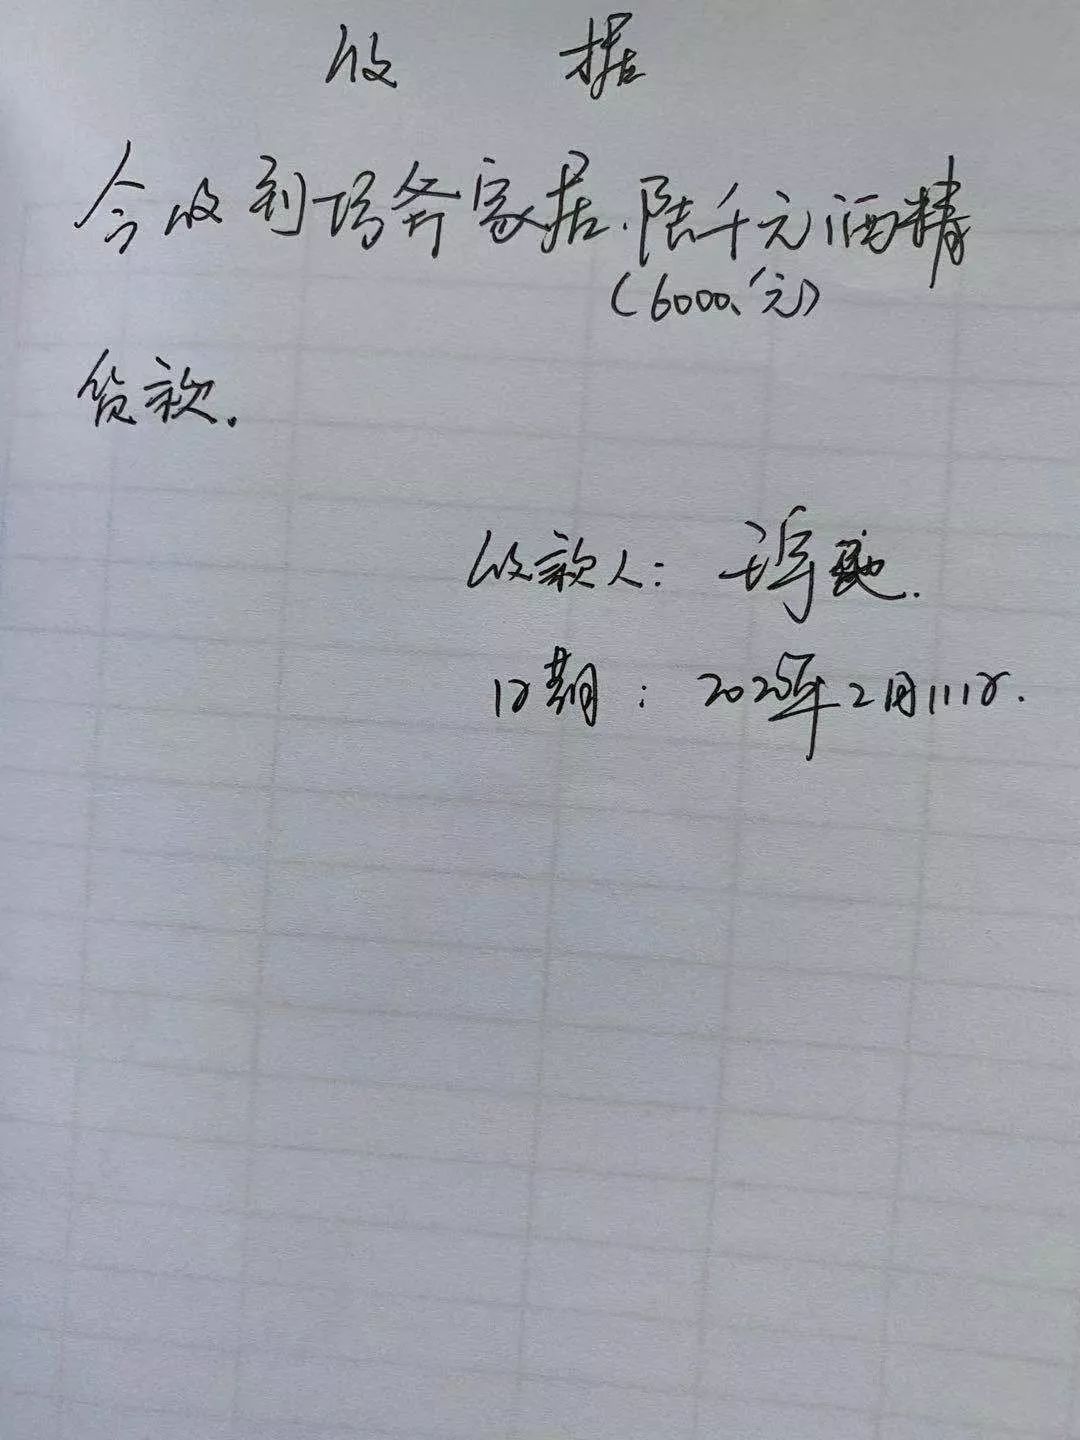 收 据
今收到 家居.陆千元酒精
(6000.元)
货款.
收款人:
日期: 2025年2月11日.